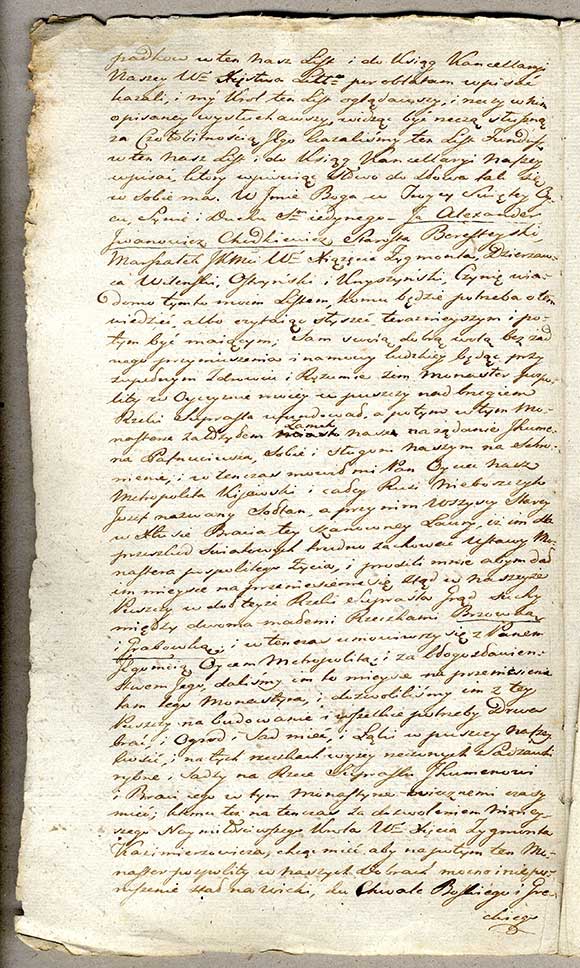 padkow w ten nasz List i do Xsiąg Kancellaryi
Naszey W. Xięstwa Litt: per oblatam wpisać
kazali, i my Krol ten List oglądawszy, i rzeczy w nim
opisaney wysłuchawszy, widząc być rzeczą słuszną
za Czołobitnością Jego kazaliśmy ten List Fundusz
w ten Nasz List i do Xsiąg Kancellaryi Naszey
wpisać, ktory wpisuiąc Słowo do Słowa tak się
w sobie ma. W Imie Boga w Troycy Swiętey Oy-
ca, Syna i Ducha S. iedynego Ja Alexander
Iwanowicz Chodkiewicz Starosta Beresteyski,
Marszałek JKMci W. Xiążęcia Zygmonta, Dzierżaw-
ca Wilenski, Ostrynski i Knyszynski, Czynię wia-
domo tymto moim Listem, komu będzie potrzeba o tem
wiedzieć, albo czytaiąc słyszeć teraznieyszym i po-
tym być maiącym, Sam swoią dobrą wolą bez żad-
nego przymuszenia i namowy ludzkiey będąc przy
zupełnym Zdrowiu i Rozumie żem Monaster pospo-
lity w Oyczyznie moiey w puszczy nad brzegiem
Rzeki Supraśla ufundował, a potym w tym Mo-
nasterze założyłem Zamek nasz na żądanie Ihume-
na Pafnuciusza, Sobie i sługom naszym na schro-
nienie, i w tenczas mowił mi Pan Oyciec nasz
Metropolita Kijowski i całey Rusi Nieboszczyk
Jozef nazwany Sołtan, a przy nim wszyscy Starcy
w Chrystusie Bracia tey szanowney Laury, iż im dla
przeszkod Swiatowych trudno zachować Ustawy Mo-
nastera pospolitego Życia, i prosili mnie abym dał
im mieysce na przeniesienie się ztąd w naszeyże
Puszczy w doł teyże Rzeki Supraśla Grąd suchy
między dwoma małemi Rzeczkami Brzowką
i Grabowką, i w tenczas umowiwszy się z Panem
Jegomcią Oycem Metropolitą, i za błogosławien-
stwem Jego, daliśmy im to mieysce na przeniesienie
tam tego Monastyra, i dozwoliliśmy im z tey
Puszczy na budowanie i wszelkie potrzeby Drwa
brać, i Ogrod i Sad mieć, i Łąki w puszczy naszey
kosić, i na tych rzeczkach wyżey rzeczonych Sadzawki
rybne i Sadzy na Rzece Supraśli Ihumenowi
i Braci iego w tym Monastyrze wiecznemi czasy
mieć; ktemu też na tenczas za dozwoleniem Nizniey-
szego Naymiłościwszego Krola W. Xięcia Zygmonta
Kazimierzowicza, chcąc mieć aby na potym ten Mo-
naster pospolity w naszych dobrach mocno i niepo-
ruszenie stał na wieki, ku Chwale Boskiego i Gre-
ckiego